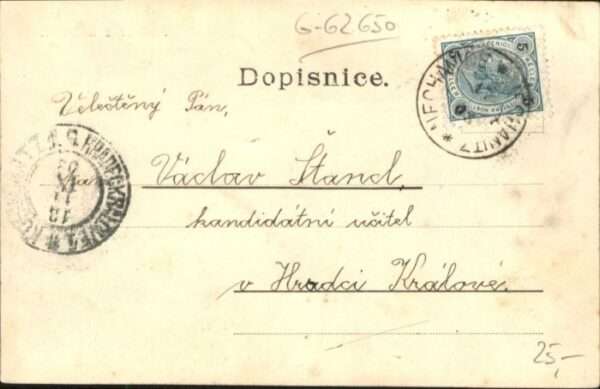 G-62650
Dopisnice.
Velectěný Pán,
Václav Štancl,
kandidátní učitel
v Hradci Králové.
25,-
5
NECHANICE
* NECHANITZ *
HRADEC KRÁLOVÉ 1